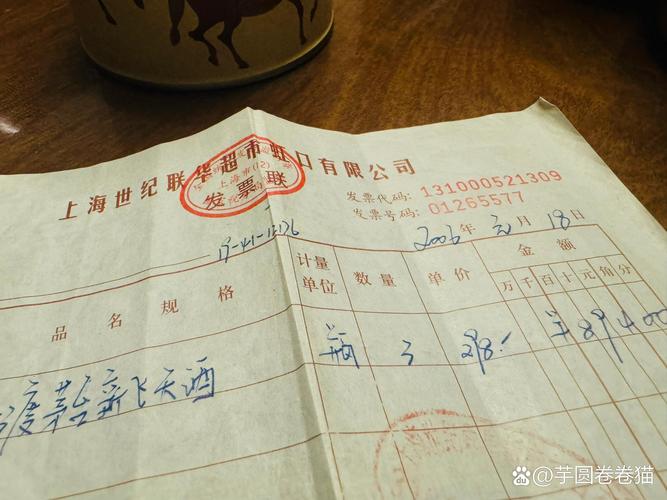 上海世纪联华超市虹口有限公司
发票联
发票代码: 131000521309
发票号码: 01265577
2006年元月18日
品名规格 计量单位 数量 单价 金额
万千百十元角分
度茅台新飞天酒 瓶 3 298.- ¥89400
芋圆卷卷猫